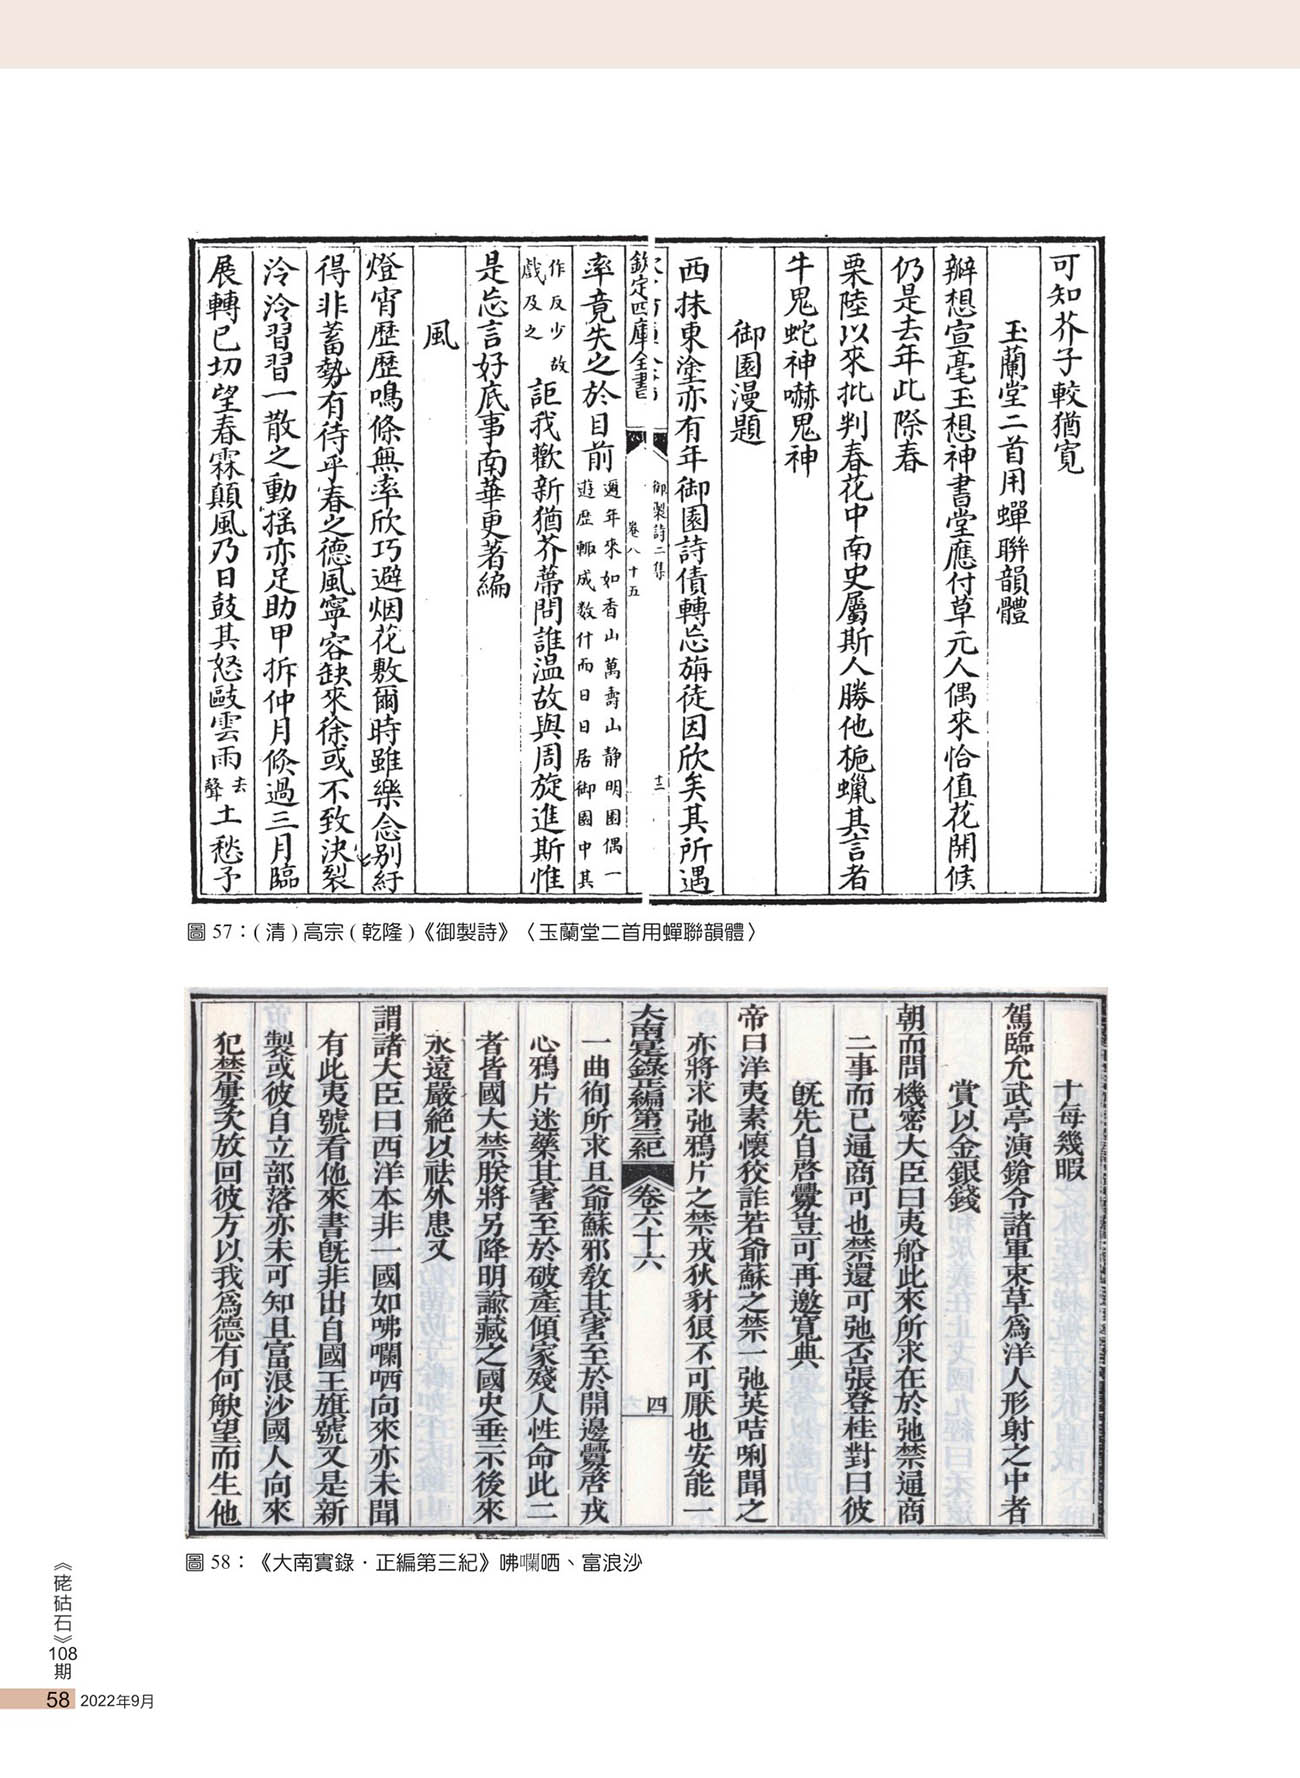 可知芥子較猶寬
玉蘭堂二首用蟬聯韻體
辦想宣毫玉想神書堂應付草元人偶來恰值花開候
仍是去年此際春
栗陸以來批判春花中南史屬斯人勝他梔蠟其言者
牛鬼蛇神嚇鬼神
御園漫題
西抹東塗亦有年御園詩債轉忘旃徒因欣矣其所遇
欽定四庫全書
御製詩二集
卷八十五
十二
率竟失之於目前
邇年來如香山萬壽山靜明園偶一
遊歷輙成數什而日日居御園中其
作反少故
戲及之
詎我歡新猶芥蔕問誰温故與周旋進斯惟
是忘言好底事南華更著編
風
燈宵歴歴鳴條無率欣巧避烟花敷爾時雖樂念别紆
得非蓄勢有待乎春之德風寧容缺來徐或不致決裂
泠泠習習一散之動揺亦足助甲拆仲月倏過三月臨
展轉已切望春霖顛風乃日鼓其怒敺雲雨去聲土愁予
圖 57：( 清 ) 高宗 ( 乾隆 )《御製詩》〈玉蘭堂二首用蟬聯韻體〉
十每幾暇
駕臨允武亭演鎗令諸軍束草爲洋人形射之中者
賞以金銀錢
朝而問機密大臣曰夷船此來所求在於弛禁通商
二事而已通商可也禁還可弛否張登桂對曰彼
旣先自啓釁豈可再邀寬典
帝曰洋夷素懷狡詐若爺蘇之禁一弛英咭唎聞之
亦將求弛鴉片之禁戎狄豺狼不可厭也安能一
大南寔錄正編第三紀
卷六十六
四
一曲徇所求且爺蘇邪教其害至於開邊釁啓戎
心鴉片迷藥其害至於破產傾家殘人性命此二
者皆國大禁朕將另降明諭藏之國史垂示後來
永遠嚴絕以祛外患又
謂諸大臣曰西洋本非一國如咈囒哂向來亦未聞
有此夷號看他來書旣非出自國王旗號又是新
製或彼自立部落亦未可知且富浪沙國人向來
犯禁屢次放回彼方以我爲德有何觖望而生他
圖 58：《大南實錄 · 正編第三紀》咈囒哂、富浪沙
《硓𥑮石》108期
58 2022年9月